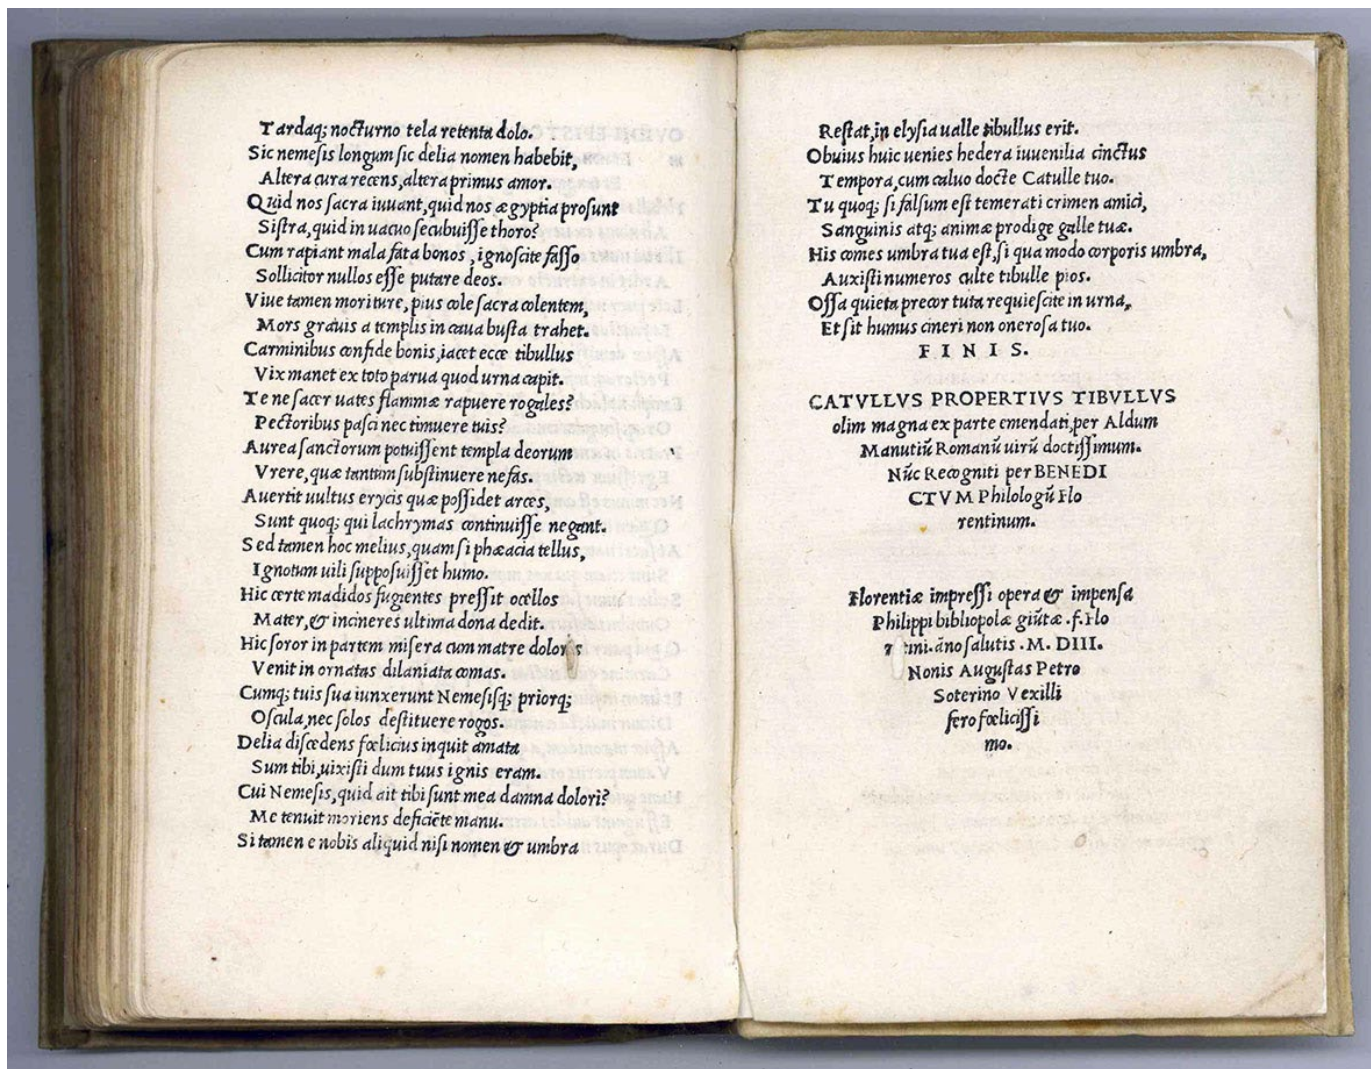 Tardaq; nocturno tela retenta dolo.
Sic nemesis longum sic delia nomen habebit,
Altera cura recens, altera primus amor.
Quid nos sacra iuuant, quid nos ægyptia prosunt
Sistra, quid in uacuo secubuisse thoro?
Cum rapiant mala fata bonos, ignoscite fasso
Sollicitor nullos esse putare deos.
Viue tamen moriture, pius cole sacra colentem,
Mors grauis a templis in caua busta trahet.
Carminibus confide bonis, iacet ecce tibullus
Vix manet ex toto parua quod urna capit.
Te ne sacer uates flammæ rapuere rogales?
Pectoribus pasci nec timuere tuis?
Aurea sanctorum potuissent templa deorum
Vrere, quæ tantum substinuere nefas.
Auertit uultus erycis quæ possidet arces,
Sunt quoq; qui lachrymas continuisse negant.
Sed tamen hoc melius, quam si phæacia tellus,
Ignotum uili supposuisset humo.
Hic certe madidos fugientes pressit ocellos
Mater, & incineres ultima dona dedit.
Hic soror in partem misera cum matre doloris
Venit in ornatas dilaniata comas.
Cumq; tuis sua iunxerunt Nemesisq; priorq;
Oscula, nec solos destituere rogos.
Delia discedens fœlicius inquit amata
Sum tibi, uixisti dum tuus ignis eram.
Cui Nemesis, quid ait tibi sunt mea damna dolori?
Me tenuit moriens deficiēte manu.
Si tamen e nobis aliquid nisi nomen & umbra
Restat, in elysia ualle tibullus erit.
Obuius huic uenies hedera iuuenilia cinctus
Tempora, cum caluo docte Catulle tuo.
Tu quoq; si falsum est temerati crimen amici,
Sanguinis atq; animæ prodige galle tuæ.
His comes umbra tua est, si qua modo corporis umbra,
Auxisti numeros culte tibulle pios.
Ossa quieta precor tuta requiescite in urna,
Et sit humus cineri non onerosa tuo.
FINIS.
CATVLLVS PROPERTIVS TIBVLLVS
olim magna ex parte emendati, per Aldum
Manutiū Romanū uirū doctissimum.
Nūc Recogniti per BENEDI
CTVM Philologū Flo
rentinum.
Florentiæ impressi opera & impensa
Philippi bibliopolæ giūtæ .f. Flo
āno salutis .M. DIII.
Nonis Augustas Petro
Soterino Vexilli
fero fœlicissi
mo.